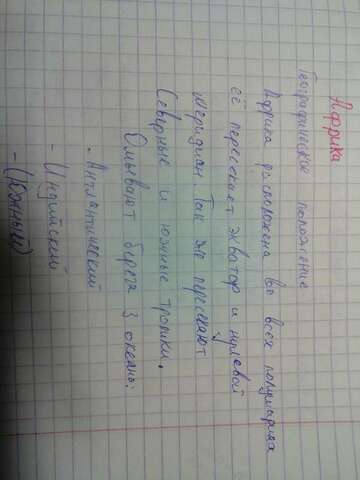 Африка
Географическое положение
Африка расположена во всех полушариях
её пересекает экватор и нулевой
меридиан. Так же пересекают
Северные и южные тропики.
Омывают берега 3 океань:
- Антлантический
- Индийский
- (Южный)